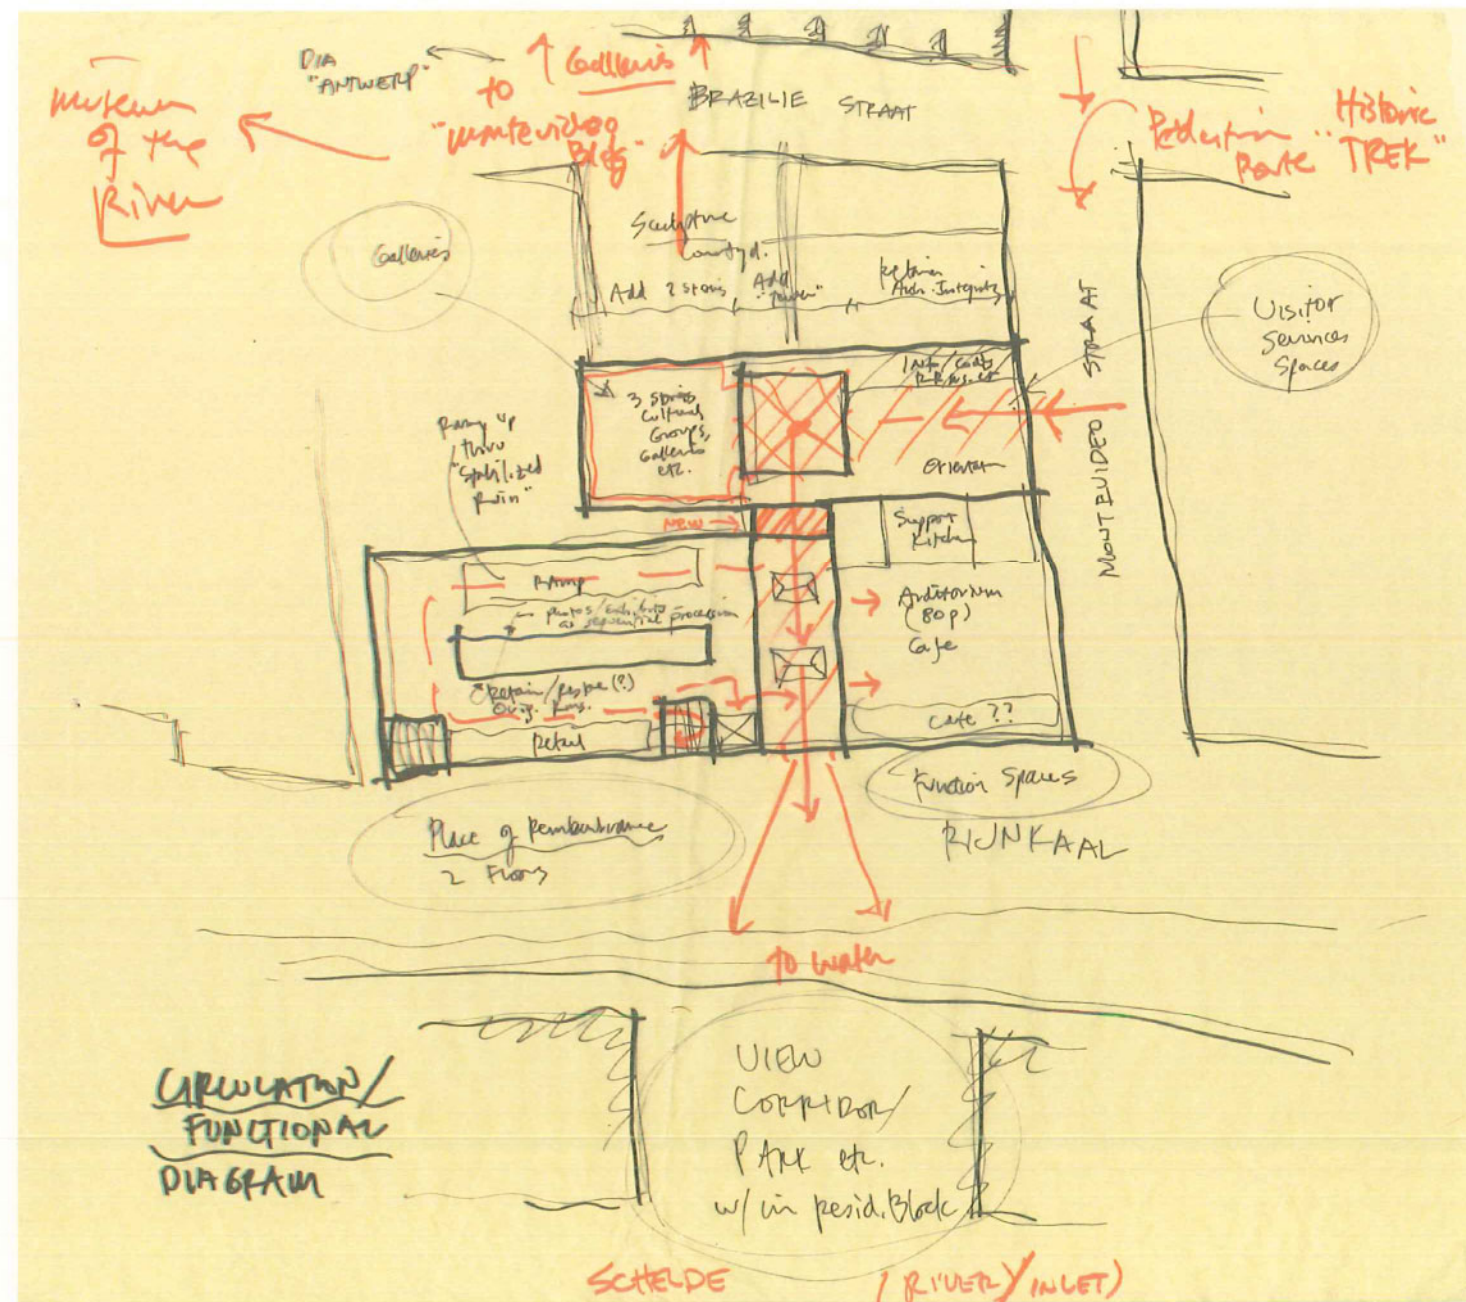 DIA
"ANTWERP"
Museum
of the
River
↑ Galleries ↑
to
"Montevideo
Bldg"
BRAZILIE STRAAT
Pedestrian
Route
"Historic
TREK"
Galleries
Sculpture
Courtyd.
Add 2 stories
Add
"Tower"
Retain
Arch. Integrity
Visitor
Services
Spaces
MONTEVIDEO STRAAT
3 stories
Cultural
Groups,
Galleries
etc.
Info/Coats
Orientation
Ramp up
thru
"Stabilized
Ruin"
NEW →
Support
Kitchen
Ramp
photos/exhibits
as sequential procession
Auditorium
(80p)
Cafe
Retain/Restore(?)
Orig. Rms.
Retail
Cafe ??
Function Spaces
RIJNKAAL
Place of Remembrance
2 Floors
to water
CIRCULATION/
FUNCTIONAL
DIAGRAM
VIEW
CORRIDOR/
PARK etc.
w/in resid. Block
SCHELDE (RIVER/INLET)